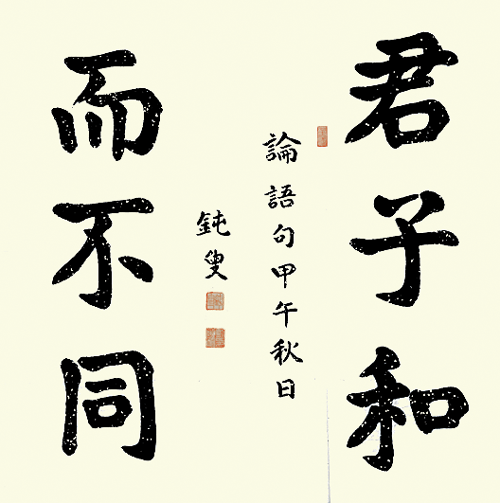 君子和
而不同
論語句甲午秋日
鈍叟